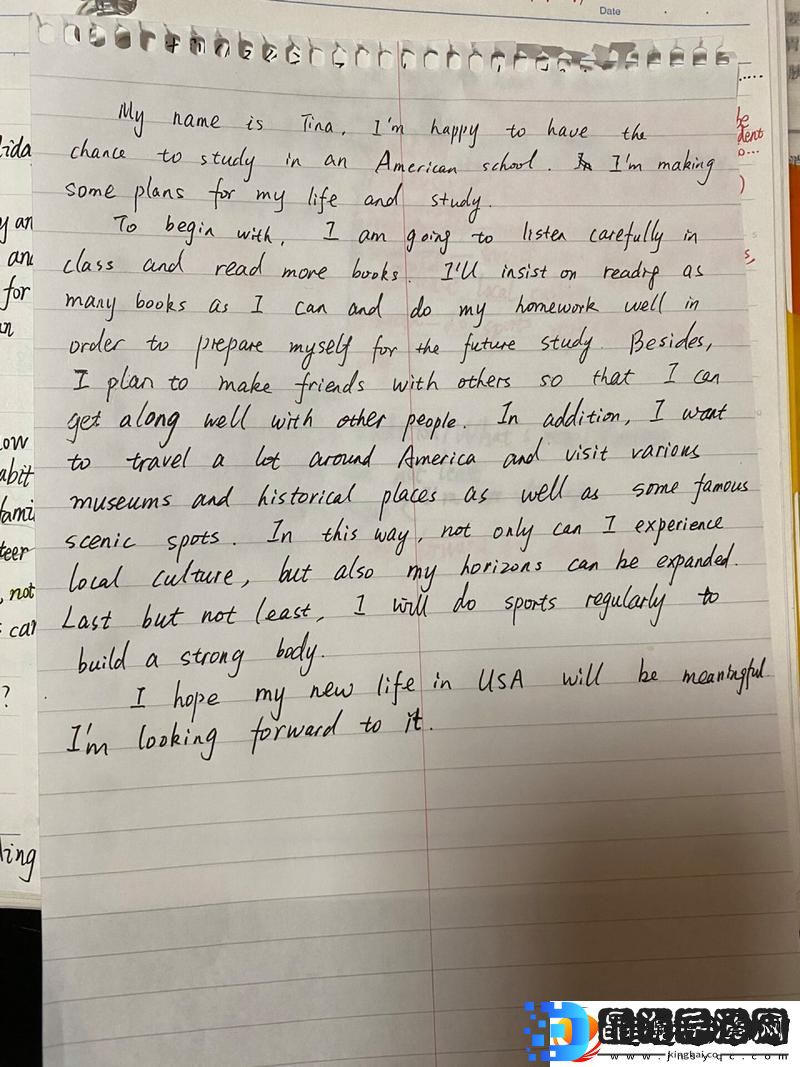 Date
My name is Tina. I'm happy to have the
chance to study in an American school. I'm making
some plans for my life and study.
To begin with, I am going to listen carefully in
class and read more books. I'll insist on readrg as
many books as I can and do my homework well in
order to prepare myself for the future study. Besides,
I plan to make friends with others so that I can
get along well with other people. In addition, I want
to travel a lot around America and visit various
museums and historical places as well as some famous
scenic spots. In this way, not only can I experience
local culture, but also my horizons can be expanded.
Last but not least, I will do sports regularly to
build a strong body.
I hope my new life in USA will be meaningful
I'm looking forward to it.